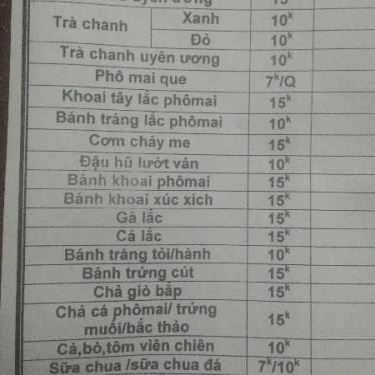 uyên ương 15k
Trà chanh Xanh 10k
Đỏ 10k
Trà chanh uyên ương 10k
Phô mai que 7k/Q
Khoai tây lắc phômai 15k
Bánh tráng lắc phômai 10k
Cơm cháy me 15k
Đậu hũ lướt ván 10k
Bánh khoai phômai 15k
Bánh khoai xúc xích 15k
Gà lắc 15k
Cá lắc 15k
Bánh tráng tỏi/hành 10k
Bánh trứng cút 15k
Chả giò bắp 15k
Chả cá phômai/ trứng
muối/bắc thảo 15k
Cá,bò,tôm viên chiên 10k
Sữa chua /sữa chua đá 7k/10k